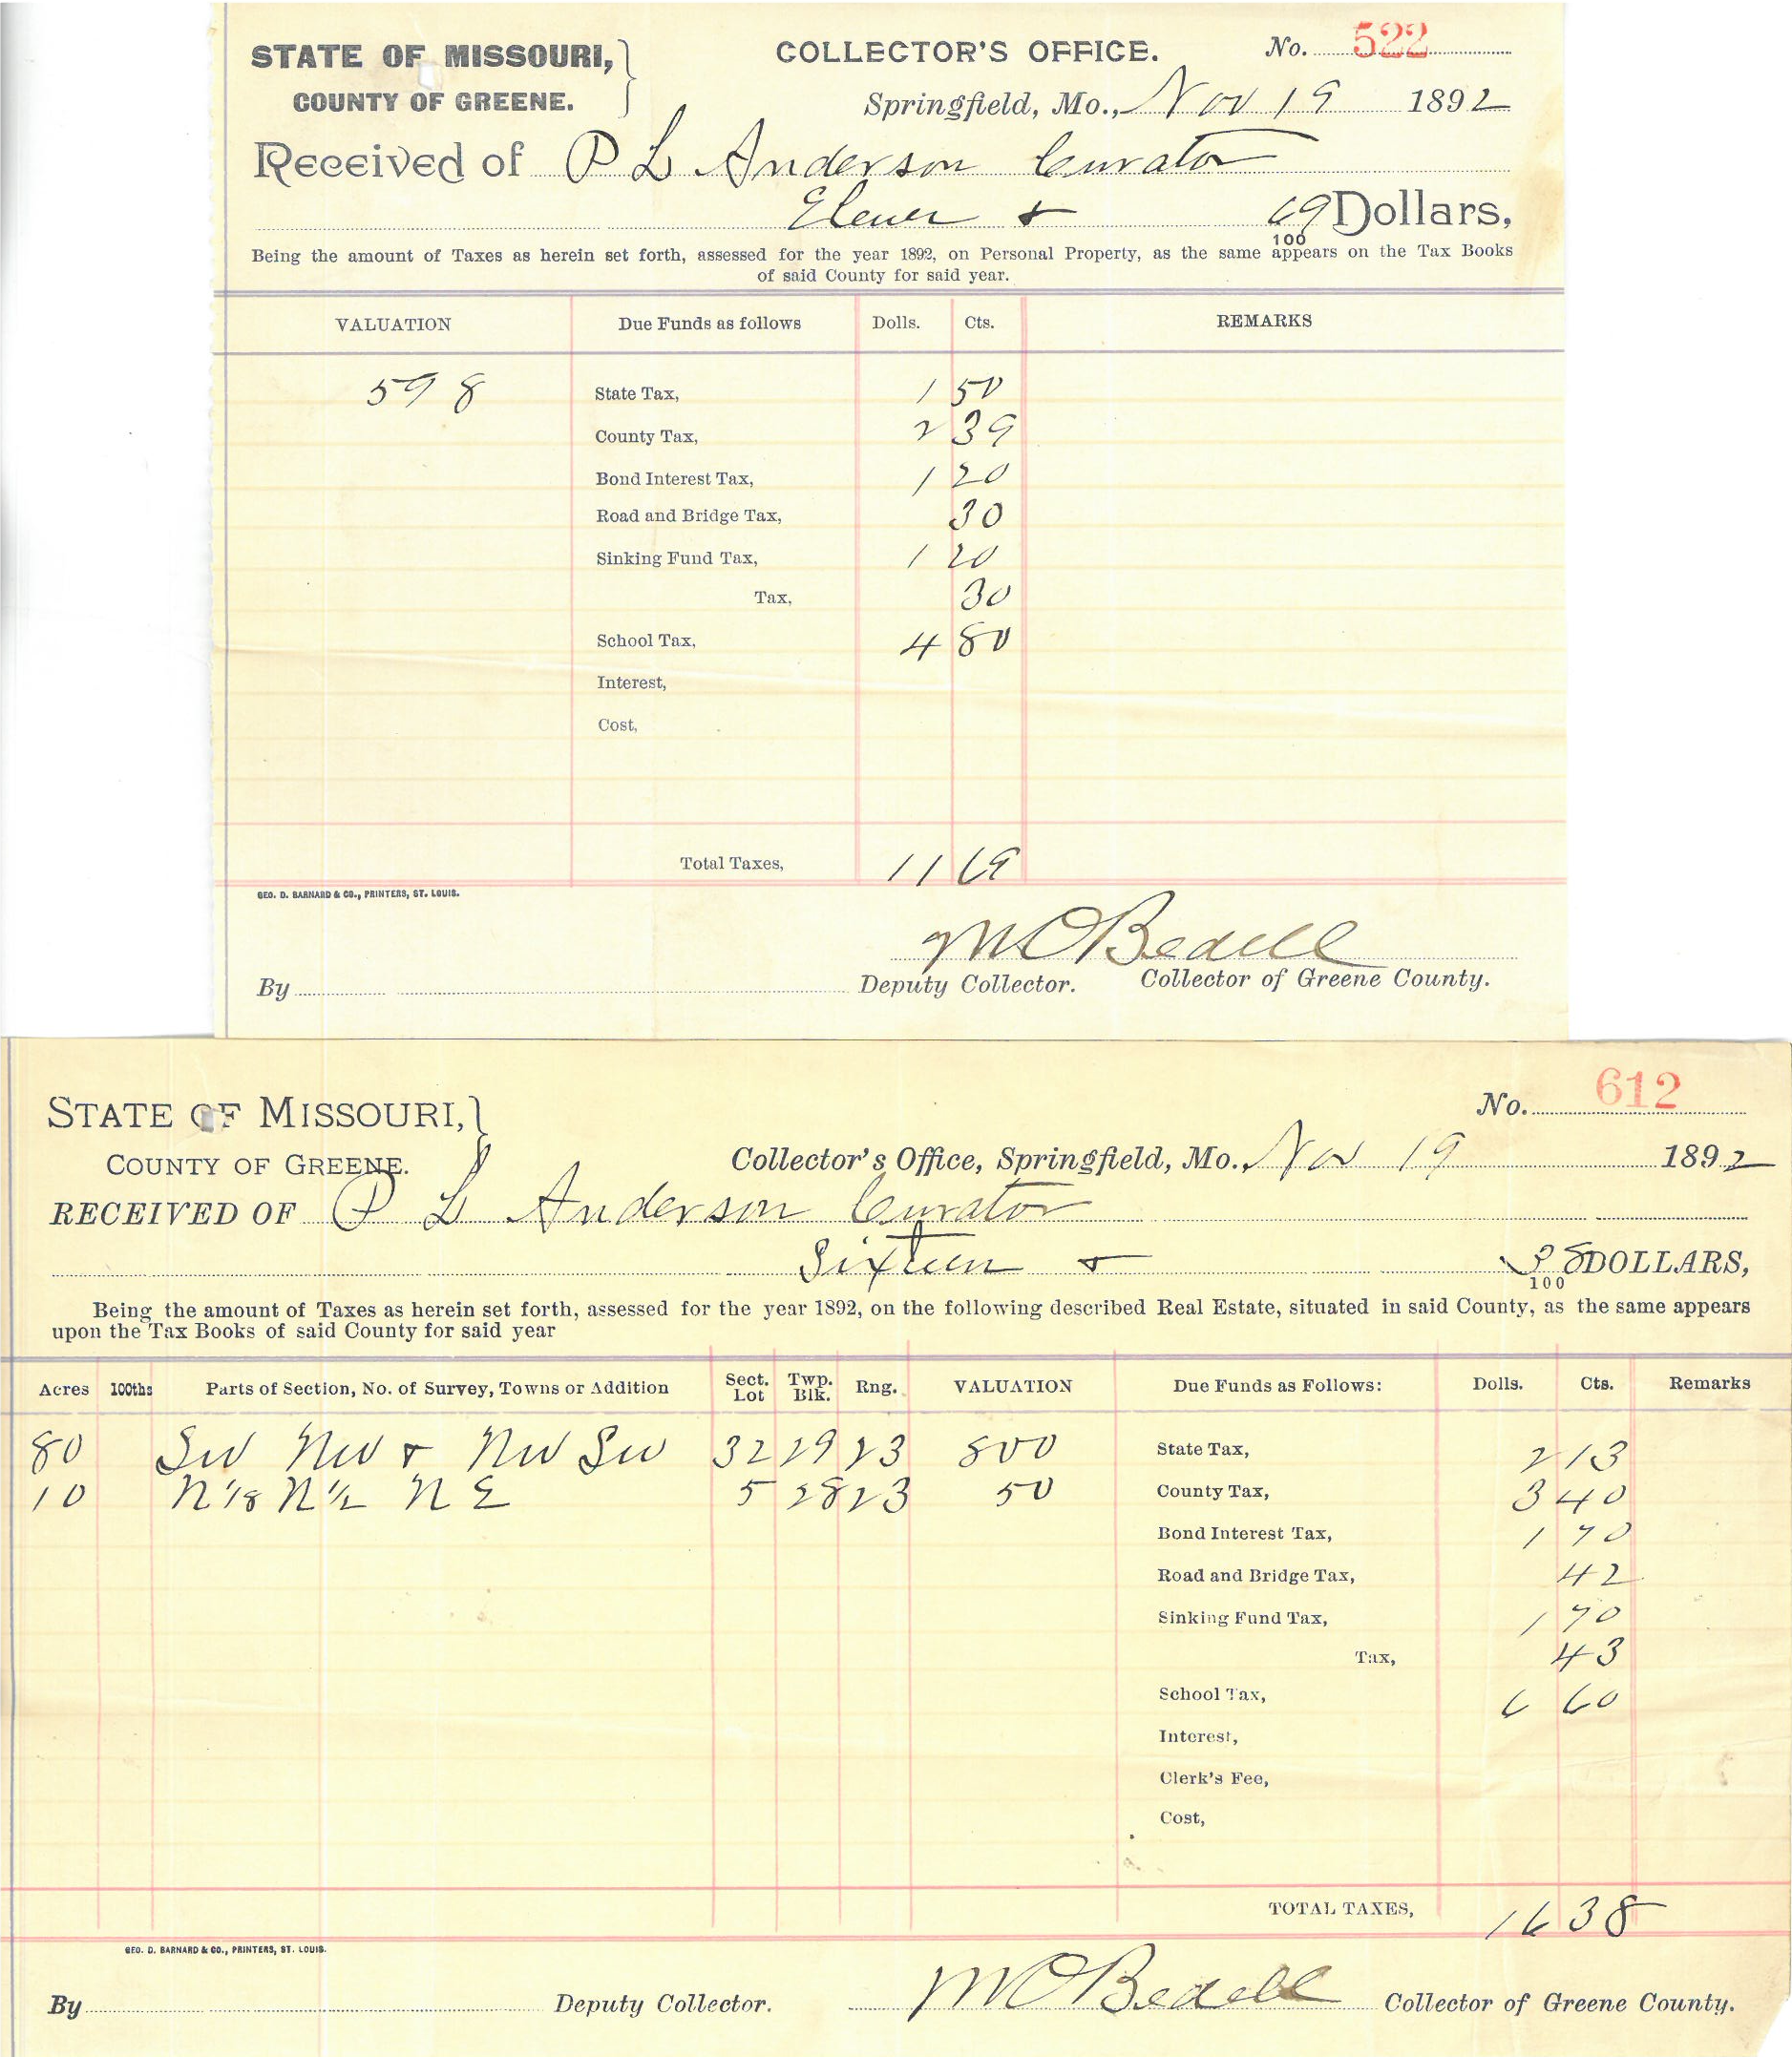 STATE OF MISSOURI, } COLLECTOR'S OFFICE. No. 522
COUNTY OF GREENE. Springfield, Mo., Nov 19 1892
Received of P L Anderson Curator
Eleven + 69/100 Dollars,
Being the amount of Taxes as herein set forth, assessed for the year 1892, on Personal Property, as the same appears on the Tax Books
of said County for said year.
VALUATION Due Funds as follows Dolls. Cts. REMARKS
598 State Tax, 1 50
County Tax, 2 39
Bond Interest Tax, 1 20
Road and Bridge Tax, 30
Sinking Fund Tax, 1 20
Tax, 30
School Tax, 4 80
Interest,
Cost,
Total Taxes, 11 69
GEO. D. BARNARD & CO., PRINTERS, ST. LOUIS.
M O Bedell
By Deputy Collector. Collector of Greene County.
STATE OF MISSOURI, } No. 612
COUNTY OF GREENE. Collector's Office, Springfield, Mo., Nov 19 1892
RECEIVED OF P L Anderson Curator
Sixteen + 38/100 DOLLARS,
Being the amount of Taxes as herein set forth, assessed for the year 1892, on the following described Real Estate, situated in said County, as the same appears
upon the Tax Books of said County for said year
Acres 100ths Parts of Section, No. of Survey, Towns or Addition Sect. Lot Twp. Blk. Rng. VALUATION Due Funds as Follows: Dolls. Cts. Remarks
80 SW NW + NW SW 32 29 23 800 State Tax, 2 13
10 N 1/8 N 1/2 N E 5 28 23 50 County Tax, 3 40
Bond Interest Tax, 1 70
Road and Bridge Tax, 42
Sinking Fund Tax, 1 70
Tax, 43
School Tax, 6 60
Interest,
Clerk's Fee,
Cost,
TOTAL TAXES, 16 38
GEO. D. BARNARD & CO., PRINTERS, ST. LOUIS.
By Deputy Collector. M O Bedell Collector of Greene County.